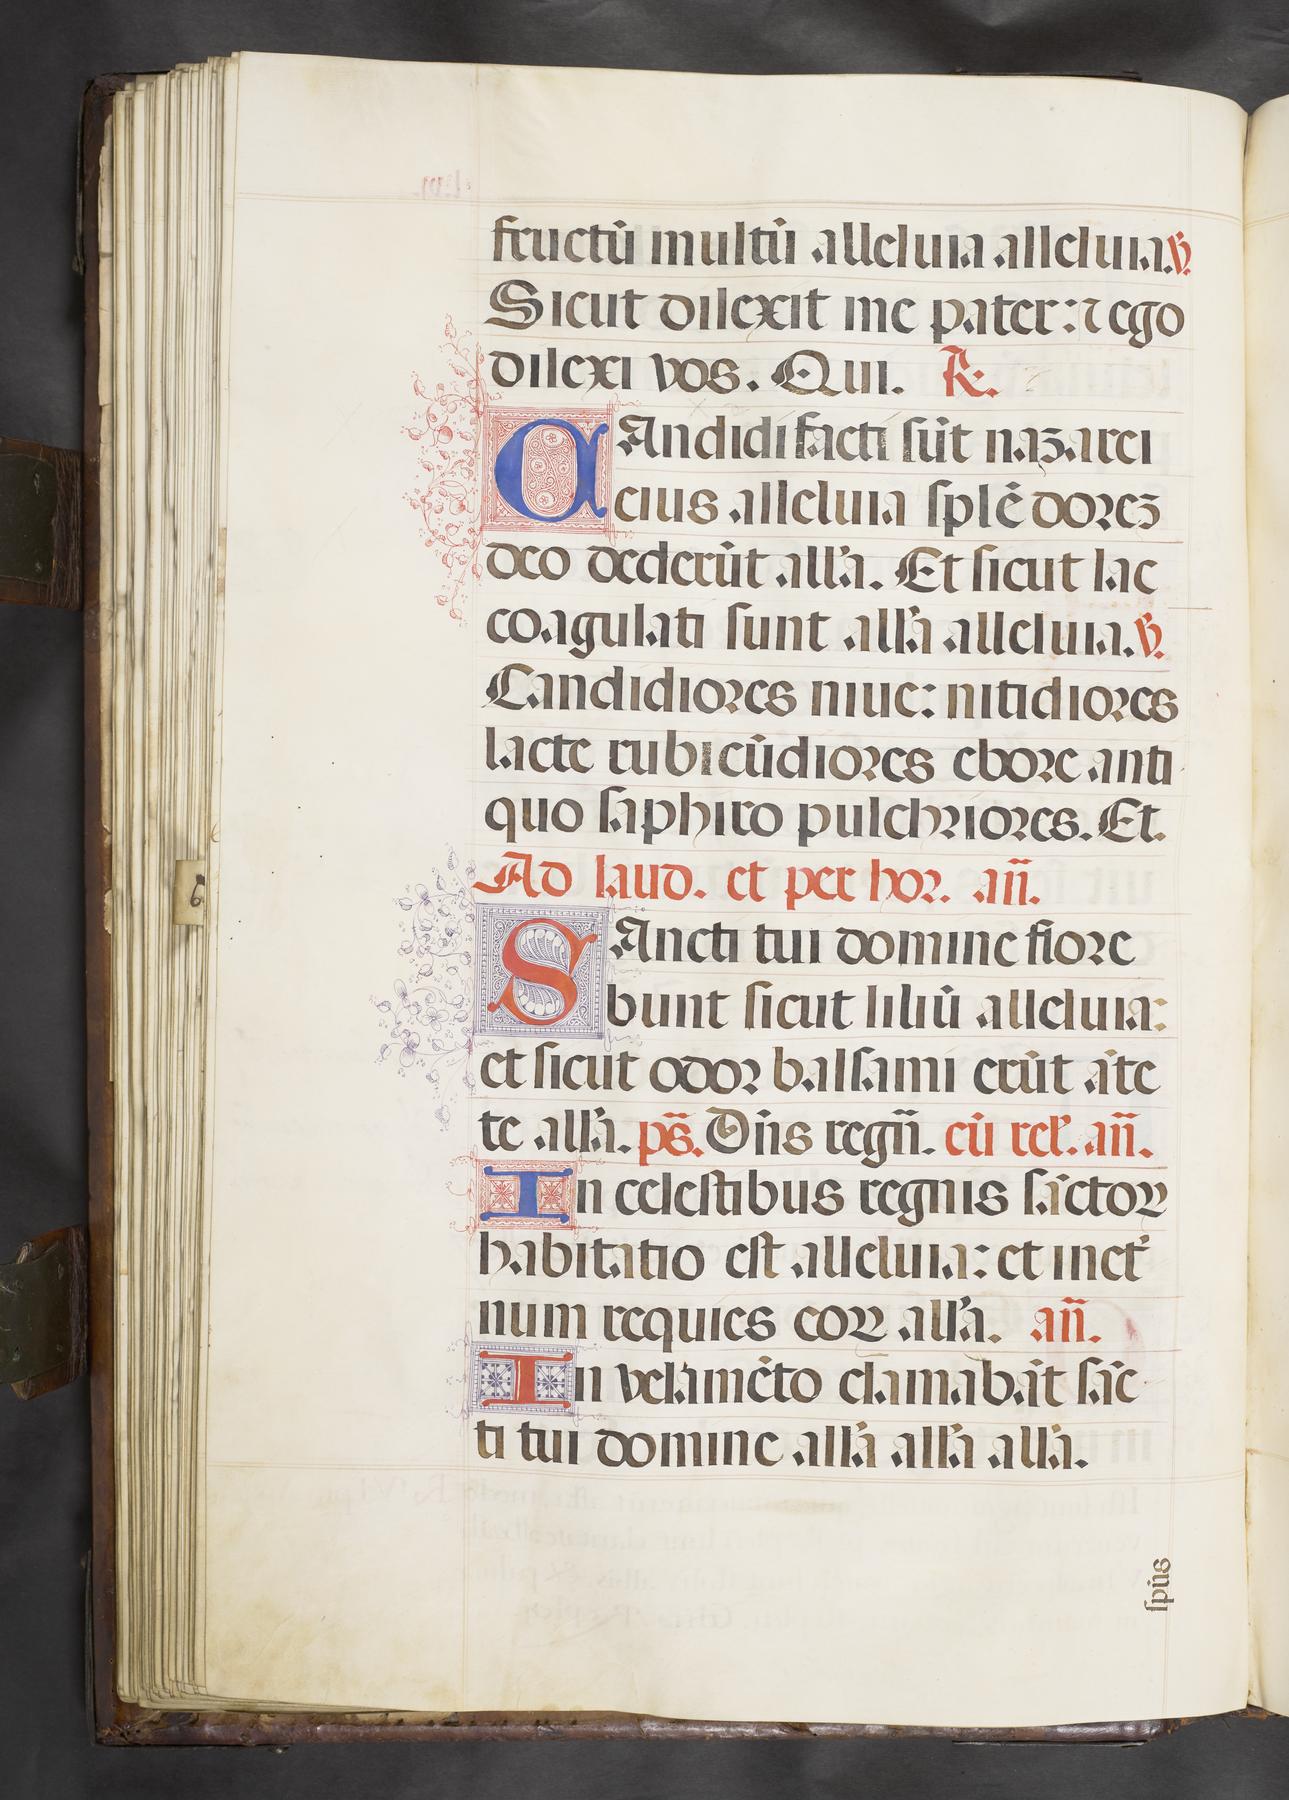 fructū multū alleluia alleluia. ℣.
Sicut dilexit me pater: ⁊ ego
dilexi vos. Qui. ℟.
CAndidi facti sūt nazarei
eius alleluia splēdoreꝫ
deo dederūt all'a. Et sicut lac
coagulati sunt all'a alleluia. ℣.
Candidiores niue: nitidiores
lacte rubicūdiores ebore anti
quo saphiro pulchriores. Et.
Ad laud. et per hor. añ.
SAncti tui domine flore
bunt sicut liliū alleluia:
et sicut odor balsami erūt āte
te all'a. ps̄. Dñs regñ. cū rel'. añ.
In celestibus regnis sāctoꝝ
habitatio est alleluia: et in et̾
num requies eoꝝ all'a. añ.
In velamēto clamabāt sāc
ti tui domine all'a all'a all'a.
spūs